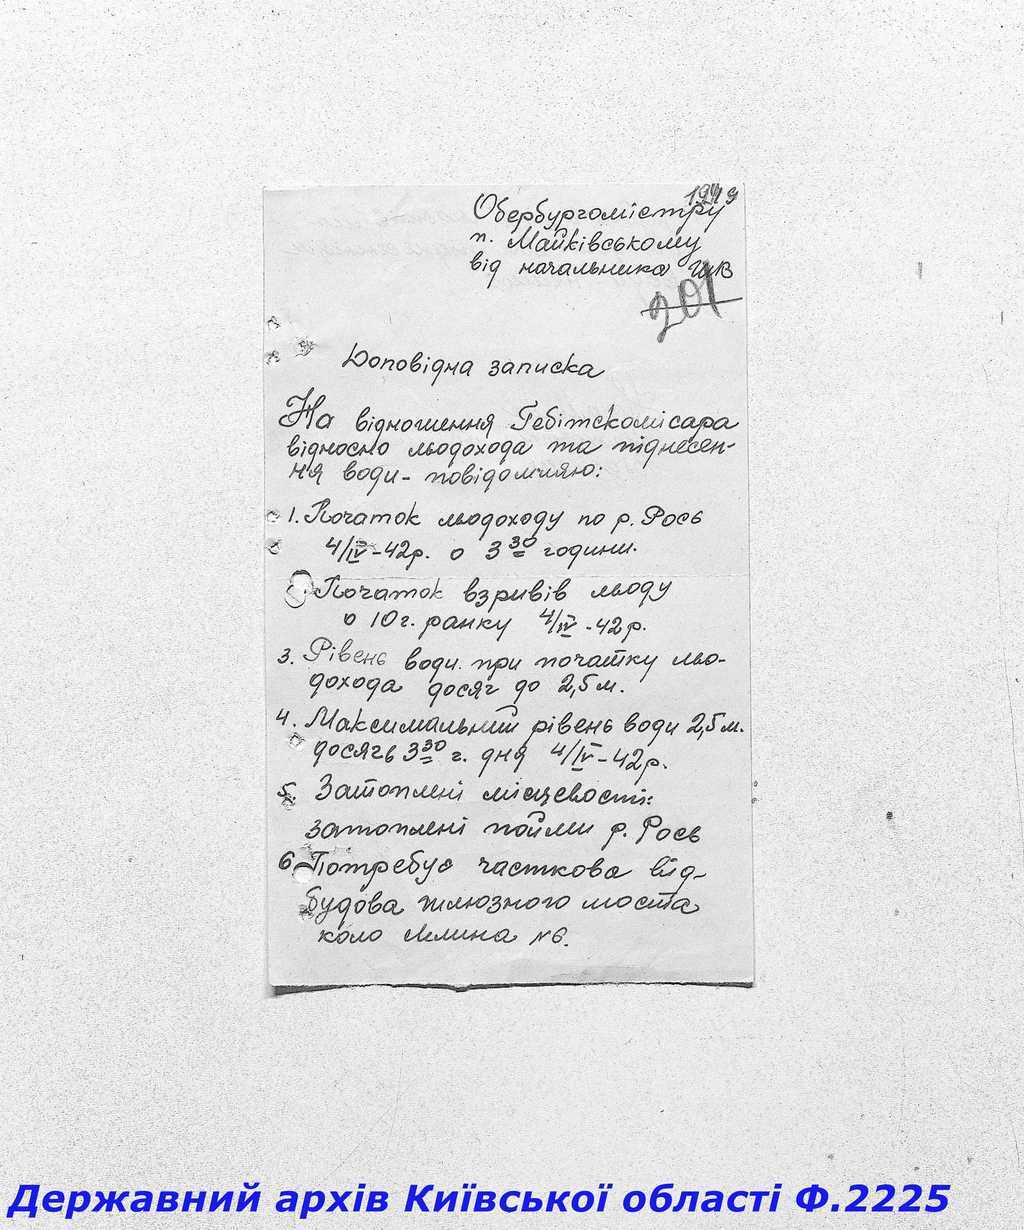 Обербургомістру
п. Майківському
від начальника
201
Доповідна записка
На відношення Гебітскомісара
відносно льодохода та піднесен-
ня води - повідомляю:
1. Початок льодоходу по р. Рось
4/IV-42р. о 3 30 години.
Початок взривів льоду
о 10 г. ранку 4/IV-42р.
3. Рівень води при початку льо-
дохода досяг до 2,5 м.
4. Максимальний рівень води 2,5 м.
досягь 3 30 г. дня 4/IV-42р.
5. Затоплені місцевості:
затоплені пойми р. Рось
6. Потребує часткова від-
будова шлюзного моста
коло млина №6.
Державний архів Київської області Ф.2225